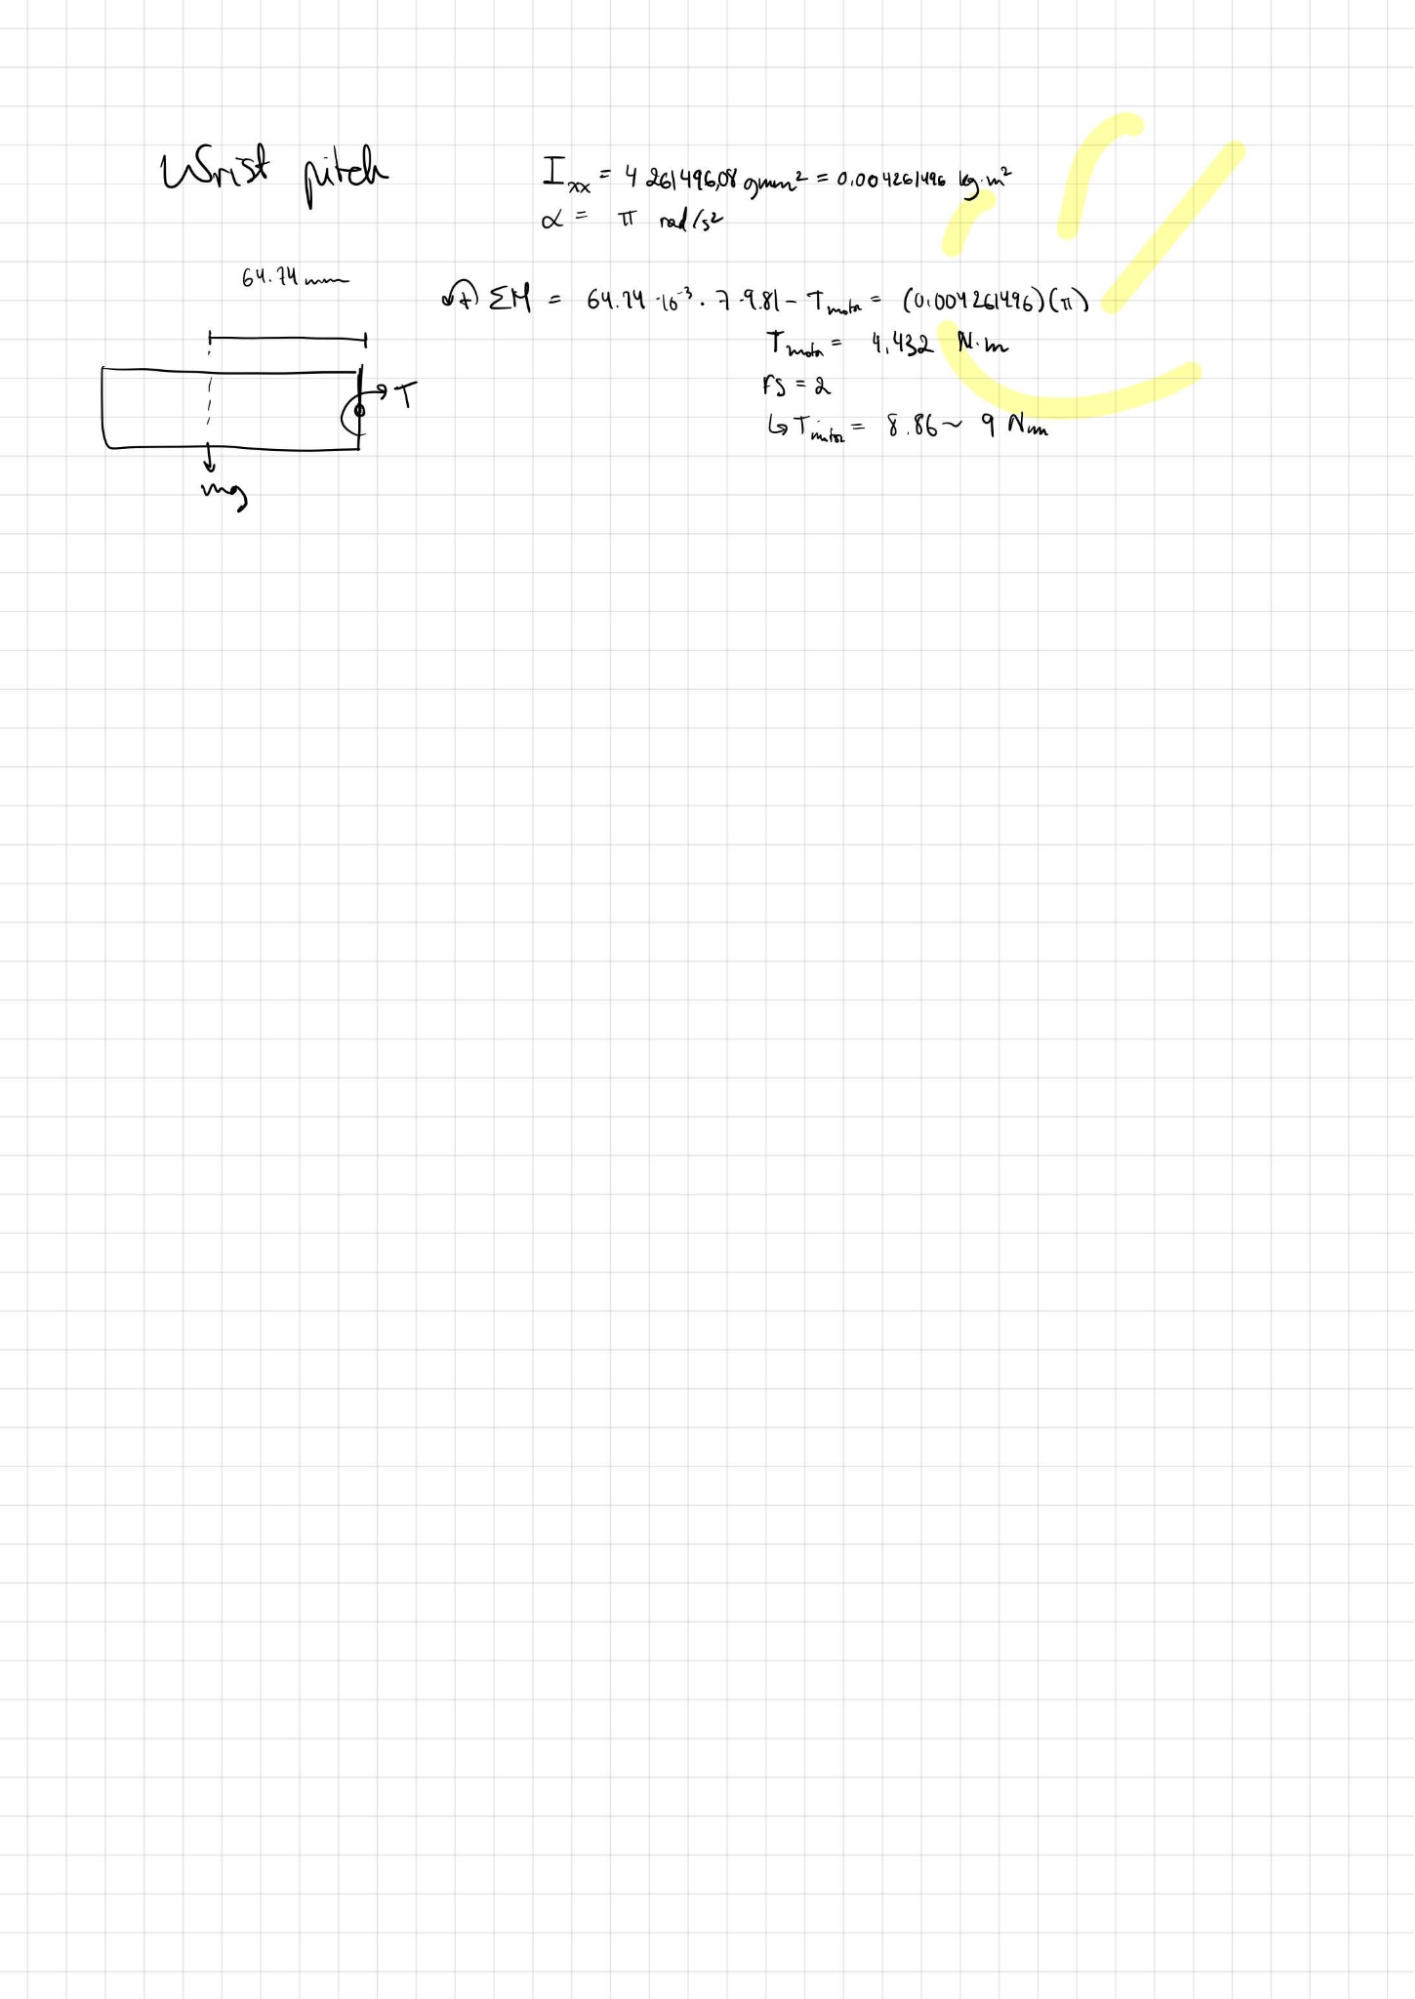 Wrist pitch
Ixx = 4 261496,08 gmm² = 0.004261496 kg·m²
α = π rad/s²
64.74 mm
↶+ ΣM = 64.74 · 10⁻³ · 7 · 9.81 - Tmotor = (0.004261496)(π)
Tmotor = 4,432 N·m
FS = 2
↳ Tmotor = 8.86 ~ 9 Nm
T
mg